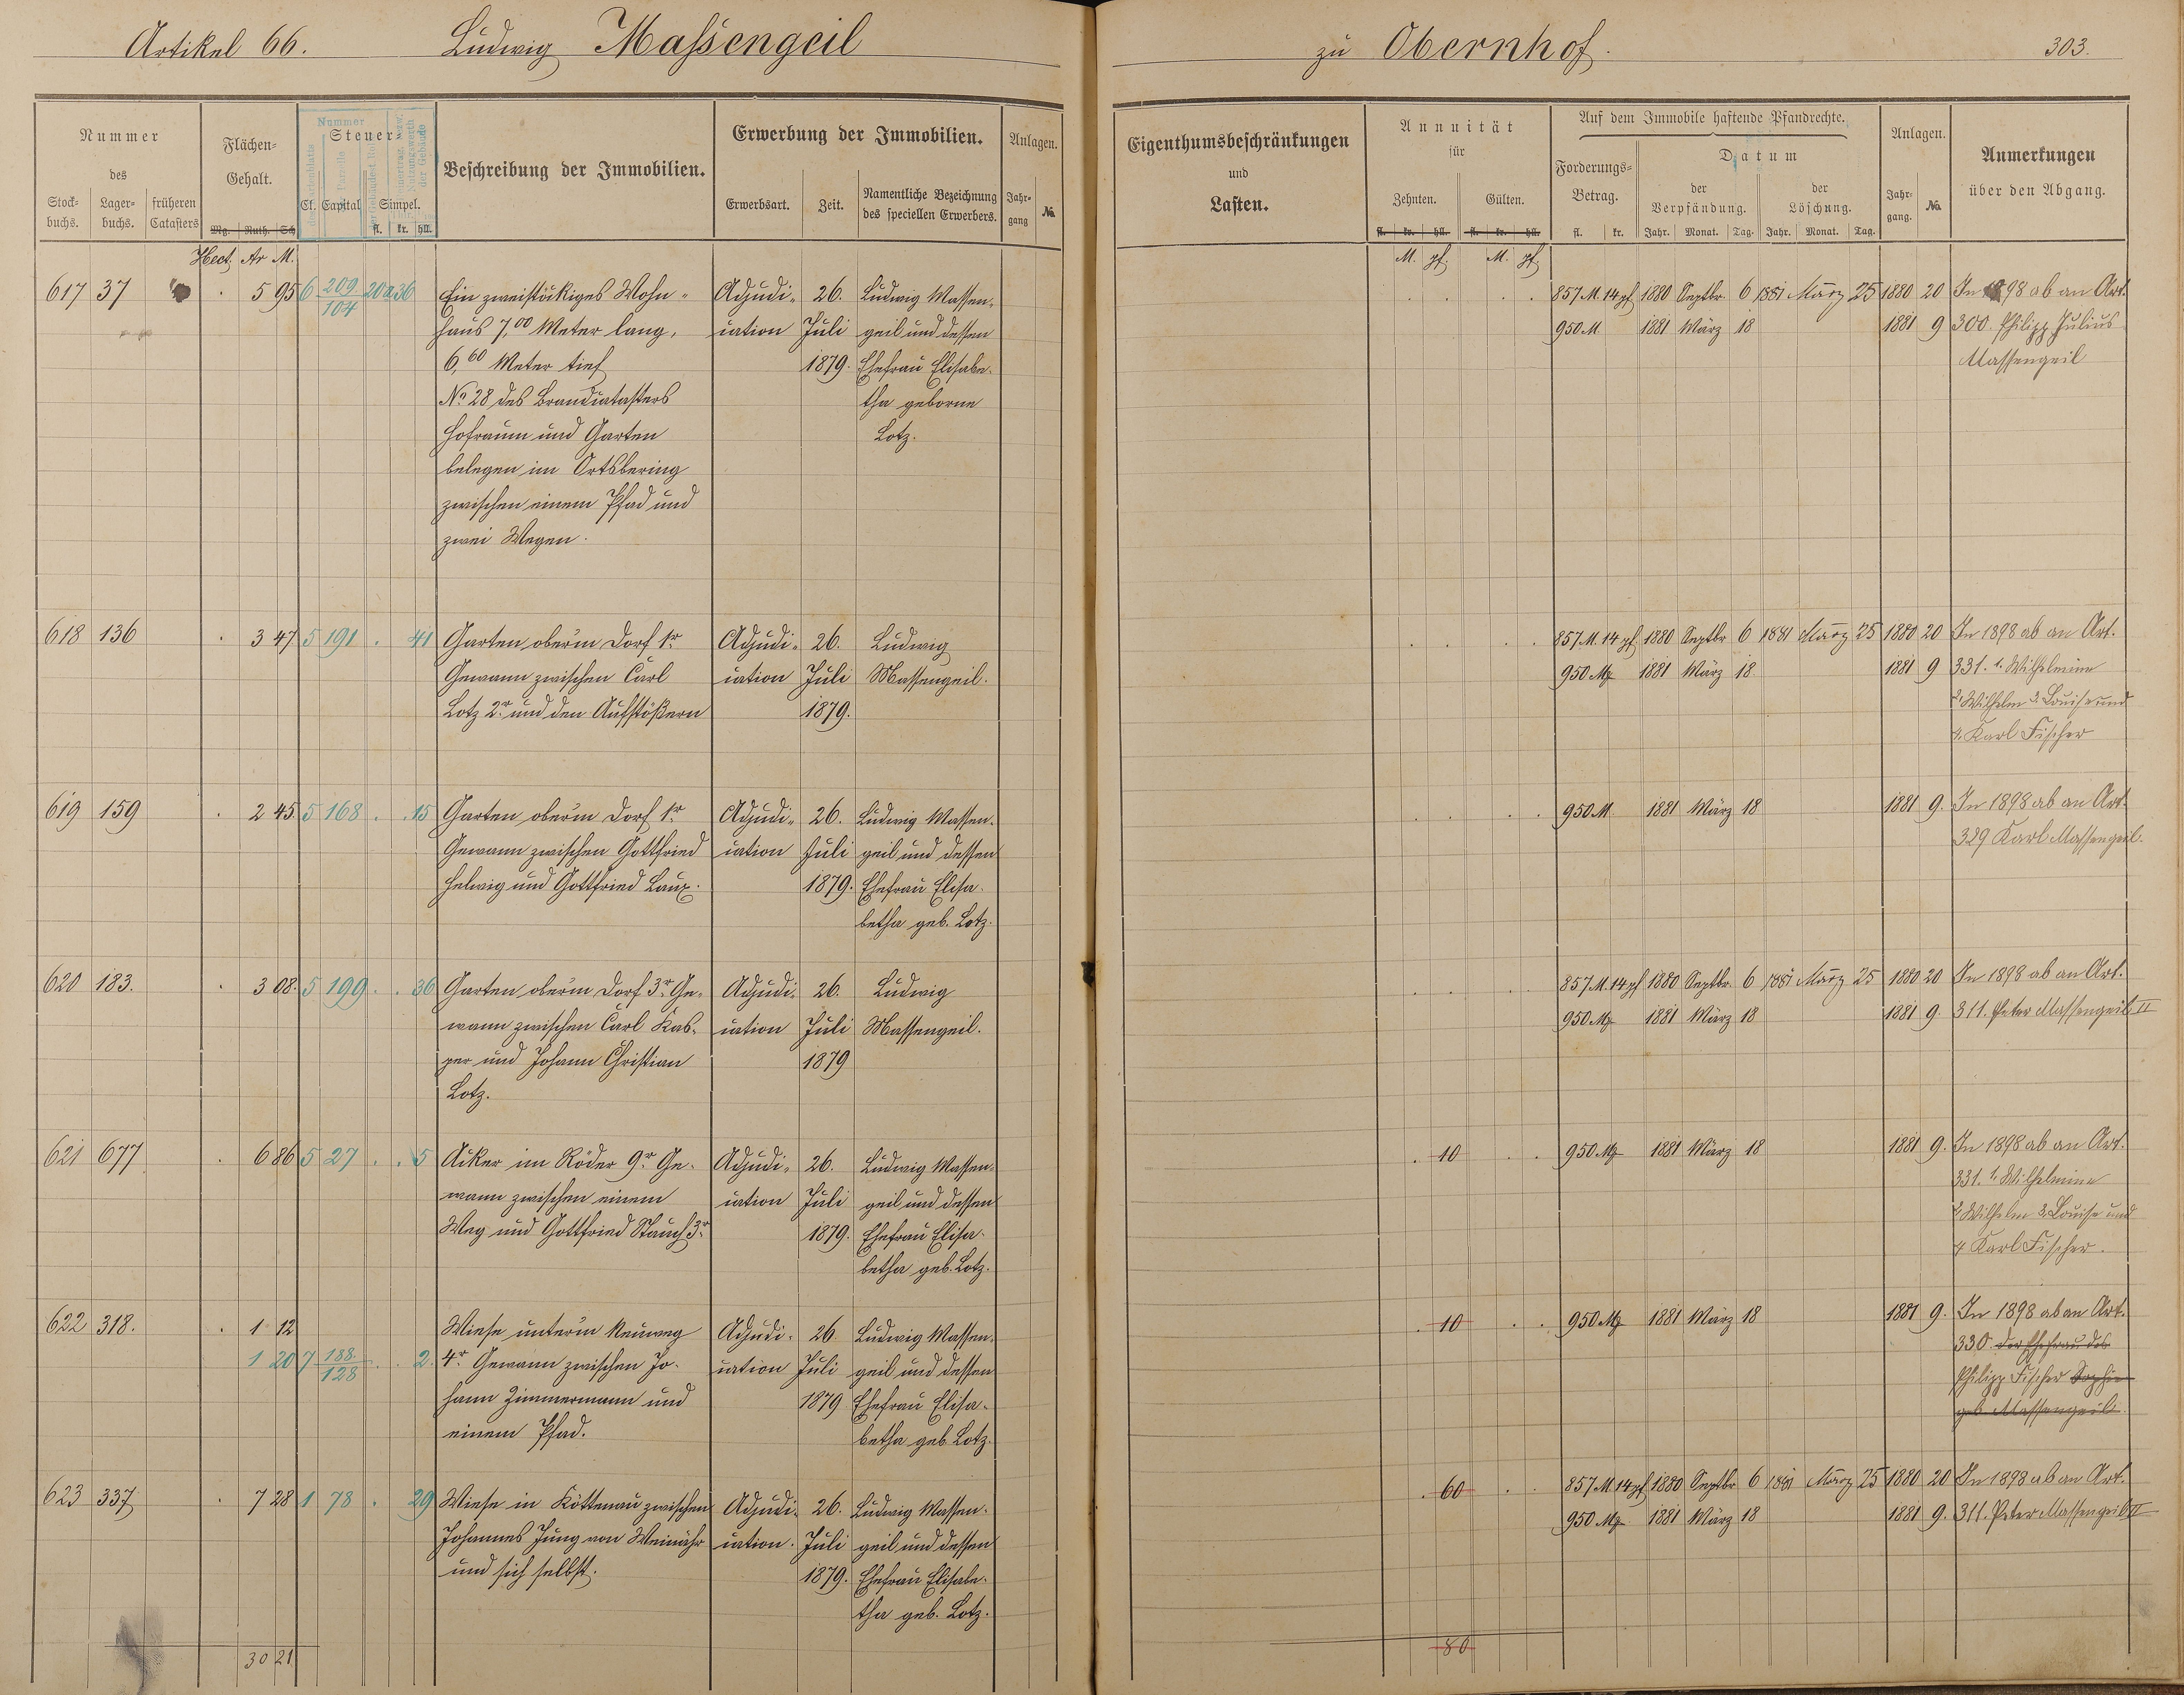 Artikel 66. Ludwig Massengeil
zu Obernhof. 303.
Nummer des
Stock- buchs. Lager- buchs. früheren Catasters
Flächen- Gehalt.
Mg. Ruth. Sch
Steuer-
Cl. Capital Simpel.
fl. kr. hll.
Nummer
Beschreibung der Immobilien.
Erwerbung der Immobilien.
Erwerbsart. Zeit. Namentliche Bezeichnung des speciellen Erwerbers.
Anlagen.
Jahr- gang No.
Eigenthumsbeschränkungen
und
Lasten.
Annuität
für
Zehnten. Gülten.
fl. kr. hll. fl. kr. hll.
Auf dem Immobile haftende Pfandrechte.
Forderungs- Betrag.
fl. kr.
Datum
der Verpfändung. der Löschung.
Jahr. Monat. Tag. Jahr. Monat. Tag.
Anlagen.
Jahr- gang. No.
Anmerkungen
über den Abgang.
Hect. Ar M.
M. pf. M. pf.
617 37 . 5 95 6 209/104 20a 36
Ein zweistöckiges Wohn-
haus 7,00 Meter lang,
6,60 Meter tief
No 28 des Brandcatasters
Hofraum und Garten
belegen im Ortsbering
zwischen einem Pfad und
zwei Wegen.
Adjudi-
cation
26.
Juli
1879.
Ludwig Massen-
geil und dessen
Ehefrau Elisabe-
tha geborne
Lotz.
857 M. 14 pf 1880 Septbr. 6 1881 März 25 1880 20
950 M 1881 März 18 1881 9
In 1898 ab an Art.
300. Philipp Julius
Massengeil
618 136 . 3 47 5 191 . 41
Garten oberm Dorf 1r
Gewann zwischen Carl
Lotz 2r und den Aufstößern
Adjudi-
cation
26.
Juli
1879.
Ludwig
Massengeil.
857 M. 14 pf 1880 Septbr 6 1881 März 25 1880 20
950 M 1881 März 18. 1881 9
In 1898 ab an Art.
331. 1. Wilhelmine
2. Wilhelm 3. Louise und
4. Karl Fischer
619 159 . 2 45. 5 168 . . 15
Garten oberm Dorf 1r
Gewann zwischen Gottfried
Helwig und Gottfried Laux.
Adjudi-
cation
26.
Juli
1879.
Ludwig Massen-
geil und dessen
Ehefrau Elisa-
betha geb. Lotz.
950 M. 1881 März 18 1881 9.
In 1898 ab an Art.
329 Karl Massengeil.
620 183. . 3 08. 5 199 . . 36
Garten oberm Dorf 3r Ge-
wann zwischen Carl Kas-
per und Johann Christian
Lotz.
Adjudi-
cation
26.
Juli
1879
Ludwig
Massengeil.
857 M. 14 pf 1880 Septbr. 6 1881 März 25 1880 20
950 M 1881 März 18 1881 9.
In 1898 ab an Art.
311. Peter Massengeil II
621 677 . 6 86 5 27 . . 5
Acker im Röder 9r Ge-
wann zwischen einem
Weg und Gottfried Stauch 3r
Adjudi-
cation
26.
Juli
1879.
Ludwig Massen-
geil und dessen
Ehefrau Elisa-
betha geb. Lotz.
. 10 . . 950 M 1881 März 18 1881 9.
In 1898 ab an Art.
331. 1. Wilhelmine
2 Wilhelm 3. Louise und
4 Karl Fischer.
622 318. . 1 12
1 20 7 188/128 . . 2.
Wiese unterm Neuweg
4r Gewann zwischen Jo-
hann Zimmermann und
einem Pfad.
Adjudi-
cation
26
Juli
1879
Ludwig Massen-
geil und dessen
Ehefrau Elisa-
betha geb Lotz.
. 10 . . 950 M 1881 März 18 1881 9.
In 1898 ab an Art.
330 der Ehefrau des
Philipp Fischer Sophie
geb Massengeil.
623 337 . 7 28 1 78 . 29
Wiese in Köttenau zwischen
Johannes Jung von Weinähr
und sich selbst.
Adjudi-
cation.
26.
Juli
1879.
Ludwig Massen-
geil und dessen
Ehefrau Elisabe-
tha geb. Lotz.
. 60 . . 857 M. 14 pf 1880 Septbr 6 1881 März 25 1880 20
950 M 1881 März 18 1881 9.
In 1898 ab an Art.
311. Peter Massengeil II
30 21
80